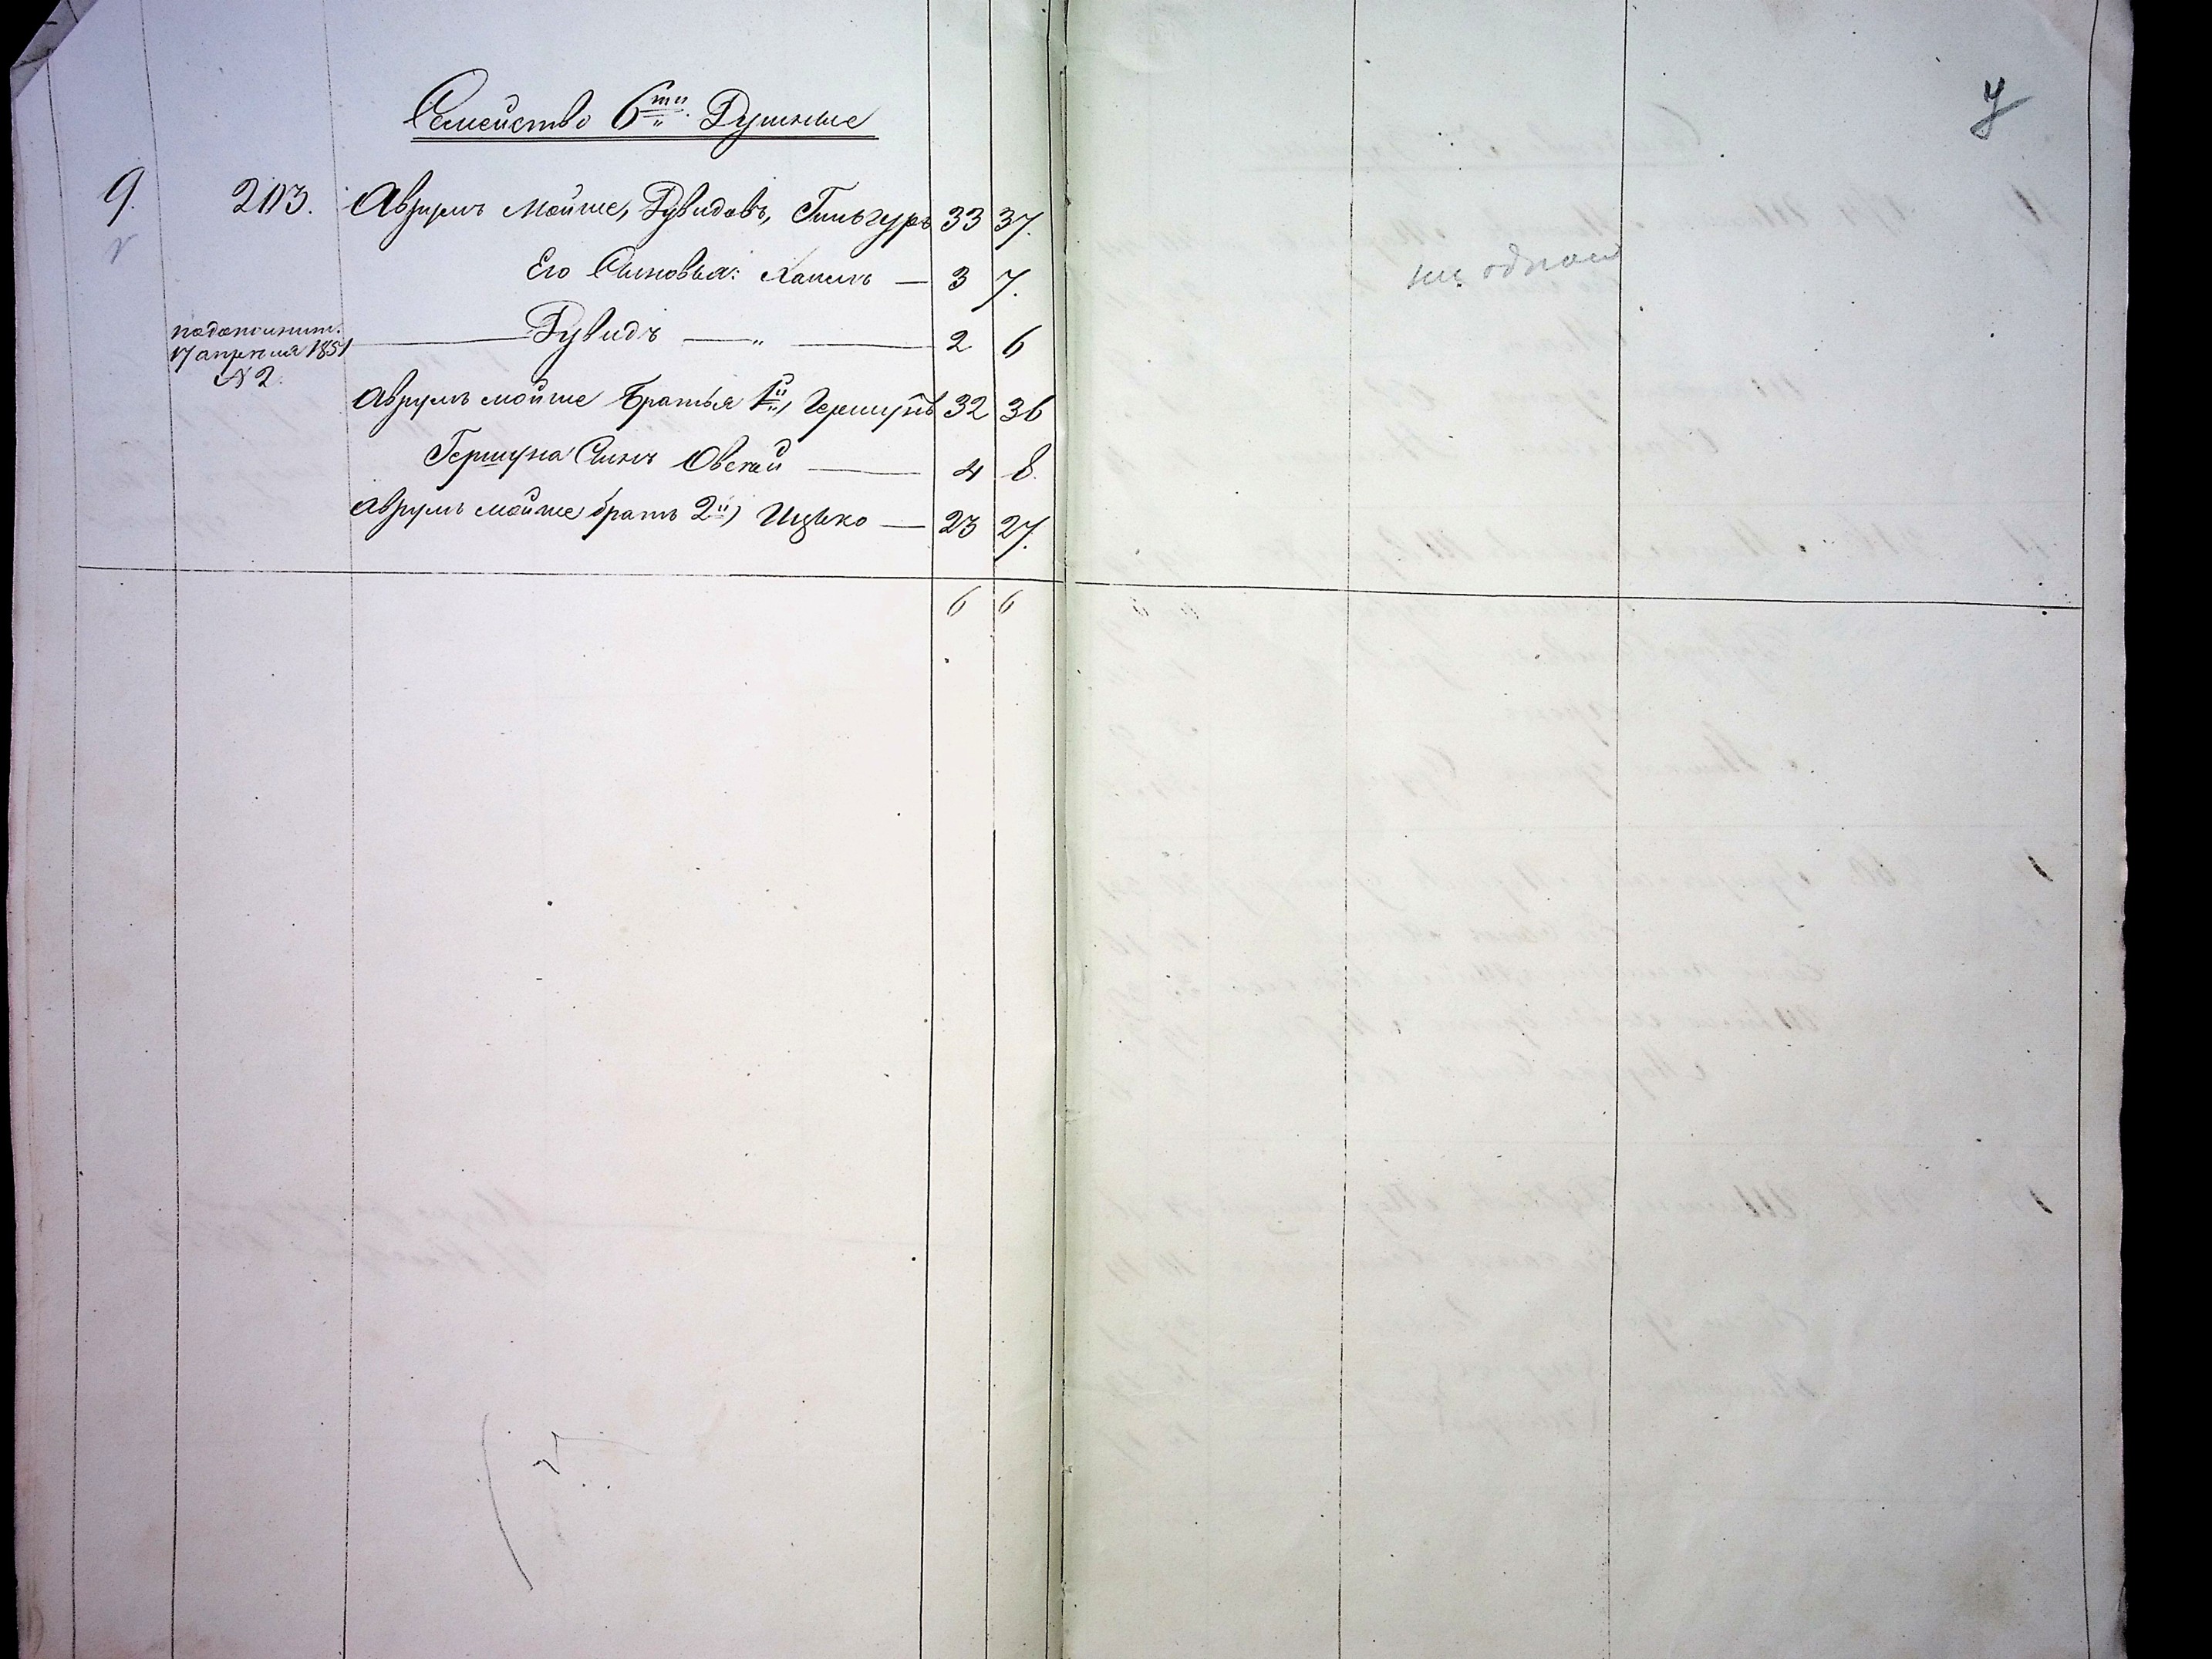 Семейство 6ти Душные
9. 203. Аврумъ Мойше, Дувидовъ, Гинзгуръ 33 37.
Его Сыновья: Хаимъ — 3 7.
Дувидъ — „ — 2 6
17 апреля 1851
№ 2.
Аврумъ мойше Братья 1й, Гершунъ 32 36
Гершуна Сынъ Овсей — 4 8.
Аврумъ мойше братъ 2й, Ицько — 23 27.
6 6
ни одной